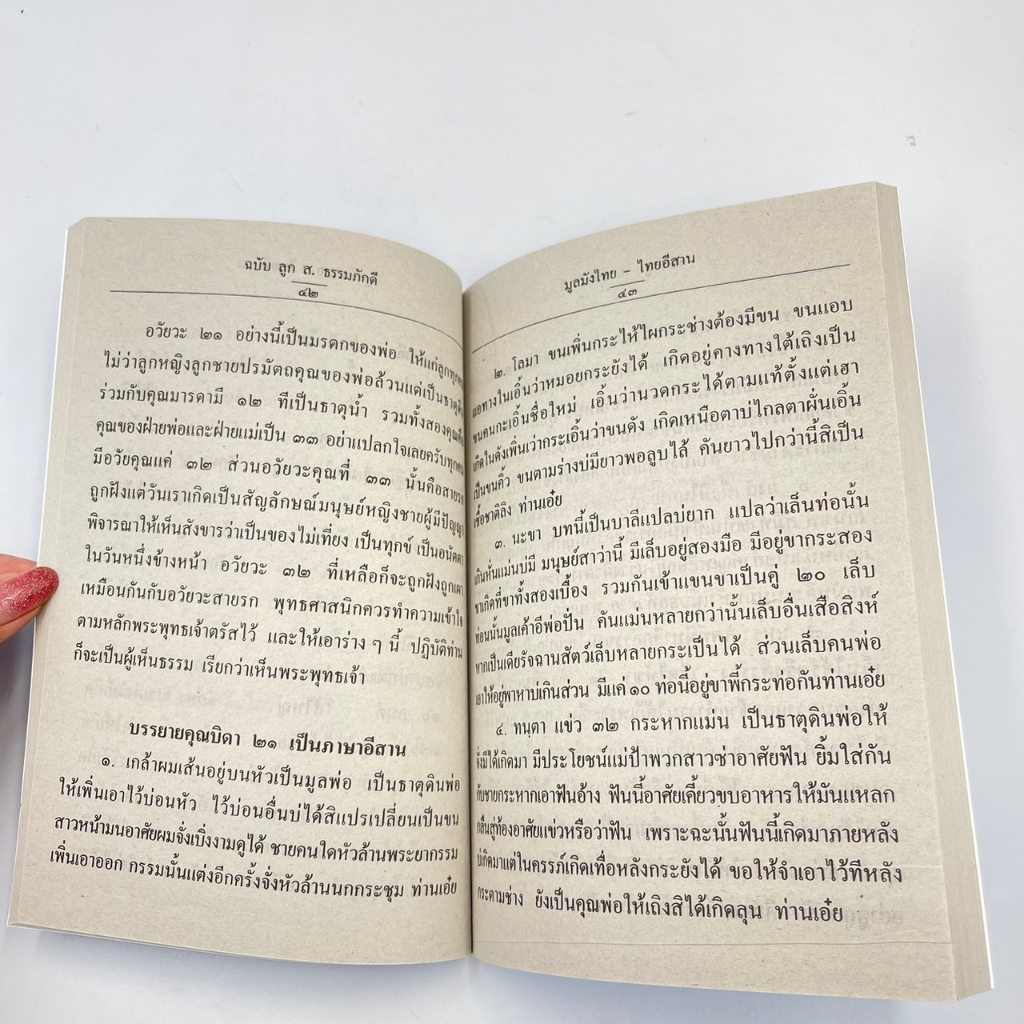 ฉบับ ลูก ส. ธรรมภักดี
๔๒
อวัยวะ ๒๑ อย่างนี้เป็นมรดกของพ่อ ให้แก่ลูก
ไม่ว่าลูกหญิงลูกชายปรมัตถคุณของพ่อล้วนแต่เป็นธาตุดิน
ร่วมกับคุณมารดามี ๑๒ ที่เป็นธาตุน้ำ รวมทั้งสองคุณ
คุณของฝ่ายพ่อและฝ่ายแม่เป็น ๓๓ อย่าแปลกใจเลยครับทุกคน
มีอวัยคุณแค่ ๓๒ ส่วนอวัยวะคุณที่ ๓๓ นั้นคือสายรก
ถูกฝังแต่วันเราเกิดเป็นสัญลักษณ์มนุษย์หญิงชายผู้มีปัญญา
พิจารณาให้เห็นสังขารว่าเป็นของไม่เที่ยง เป็นทุกข์ เป็นอนัตตา
ในวันหนึ่งข้างหน้า อวัยวะ ๓๒ ที่เหลือก็จะถูกฝังถูกเผา
เหมือนกันกับอวัยวะสายรก พุทธศาสนิกควรทำความเข้าใจ
ตามหลักพระพุทธเจ้าตรัสไว้ และให้เอาร่าง ๆ นี้ ปฏิบัติท่าน
ก็จะเป็นผู้เห็นธรรม เรียกว่าเห็นพระพุทธเจ้า
บรรยายคุณบิดา ๒๑ เป็นภาษาอีสาน
๑. เกล้าผมเส้นอยู่บนหัวเป็นมูลพ่อ เป็นธาตุดินพ่อ
ให้เพิ่นเอาไว้บ่อนหัว ไว้บ่อนอื่นบ่ได้สิแปรเปลี่ยนเป็นขน
สาวหน้ามนอาศัยผมจั่งเบิ่งงามดูได้ ชายคนใดหัวล้านพระยากรรม
เพิ่นเอาออก กรรมนั้นแต่งอีกครั้งจั่งหัวล้านนกกระชุม ท่านเอ๋ย
มูลมังไทย - ไทยอีสาน
๔๓
๒. โลมา ขนเพิ่นกระไห้ไผกระช่างต้องมีขน ขนแอบ
แอทางในเอิ้นว่าหมอยกระยังได้ เกิดอยู่คางทางใต้เถิงเป็น
ขนคนกะเอิ้นชื่อใหม่ เอิ้นว่านวดกระได้ตามแท้ตั้งแต่เฮา
เกิดในดังเพิ่นว่ากระเอิ้นว่าขนดัง เกิดเหนือตาบ่ไกลตาผั่นเอิ้น
เป็นขนคิ้ว ขนตามร่างบ่มียาวพอลูบไล้ คันยาวไปกว่านี้สิเป็น
เชื้อชาติลิง ท่านเอ๋ย
๓. นะขา บทนี้เป็นบาลีแปลบ่ยาก แปลว่าเล็นท่อนั้น
เกินหั่นแม่นบ่มี มนุษย์สาว่านี้ มีเล็บอยู่สองมือ มีอยู่ขากระสอง
ขาเกิดที่ขาทั้งสองเบื้อง รวมกันเข้าแขนขาเป็นคู่ ๒๐ เล็บ
ท่อนนั้นมูลเค้าอีพ่อปั่น คันแม่นหลายกว่านั้นเล็บอื่นเสือสิงห์
หากเป็นเดียรัจฉานสัตว์เล็บหลายกระเป็นได้ ส่วนเล็บคนพ่อ
เอาให้อยู่พาหาบ่เกินส่วน มีแค่ ๑๐ ท่อนี้อยู่ขาพี้กระท่อกันท่านเอ๋ย
๔. ทนฺตา แข่ว ๓๒ กระหากแม่น เป็นธาตุดินพ่อให้
จั่งมีได้เกิดมา มีประโยชน์แม่ป้าพวกสาวซ่าอาศัยฟัน ยิ้มใส่กัน
กับชายกระหากเอาฟันอ้าง ฟันนี้อาศัยเคี้ยวขบอาหารให้มันแหลก
กลืนสู่ท้องอาศัยแข่วหรือว่าฟัน เพราะฉะนั้นฟันนี้เกิดมาภายหลัง
บ่เกิดมาแต่ในครรภ์เกิดเทื่อหลังกระยังได้ ขอให้จำเอาไว้ทีหลัง
กระตามช่าง ยังเป็นคุณพ่อให้เถิงสิได้เกิดลุน ท่านเอ๋ย